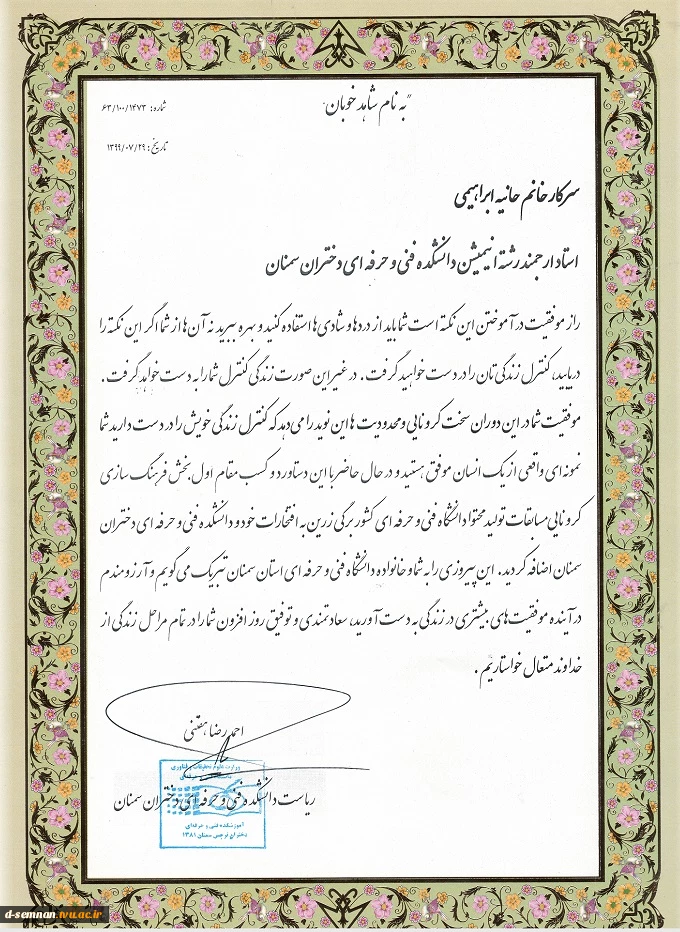 "به نام شاهد خوبان"
شماره: ۶۳/۱۰۰/۱۴۷۳
تاریخ: ۱۳۹۹/۰۷/۲۹
سرکار خانم حانیه ابراهیمی
استاد ارجمند رشته انیمیشن دانشکده فنی و حرفه ای دختران سمنان
راز موفقیت در آموختن این نکته است شما باید از دردها و شادی ها استفاده کنید و بهره ببرید نه آن ها از شما اگر این نکته را
دریابید، کنترل زندگی تان را در دست خواهید گرفت. در غیر این صورت زندگی کنترل شما را به دست خواهد گرفت.
موفقیت شما در این دوران سخت کرونایی و محدودیت ها این نوید را می دهد که کنترل زندگی خویش را در دست دارید شما
نمونه ای واقعی از یک انسان موفق هستید و در حال حاضر با این دستاورد و کسب مقام اول بخش فرهنگ سازی
کرونایی مسابقات تولید محتوا دانشگاه فنی و حرفه ای کشور برگی زرین به افتخارات خود و دانشکده فنی و حرفه ای دختران
سمنان اضافه کردید. این پیروزی را به شما و خانواده دانشگاه فنی و حرفه ای استان سمنان تبریک می گویم و آرزومندم
در آینده موفقیت های بیشتری در زندگی به دست آورید، سعادتمندی و توفیق روز افزون شما را در تمام مراحل زندگی از
خداوند متعال خواستاریم.
احمدرضا هفتنی
وزارت علوم تحقیقات و فناوری
ریاست دانشکده فنی و حرفه ای دختران سمنان
آموزشکده فنی و حرفه‌ای
دختران نرجس سمنان ۱۳۸۱
d-semnan.tvu.ac.ir